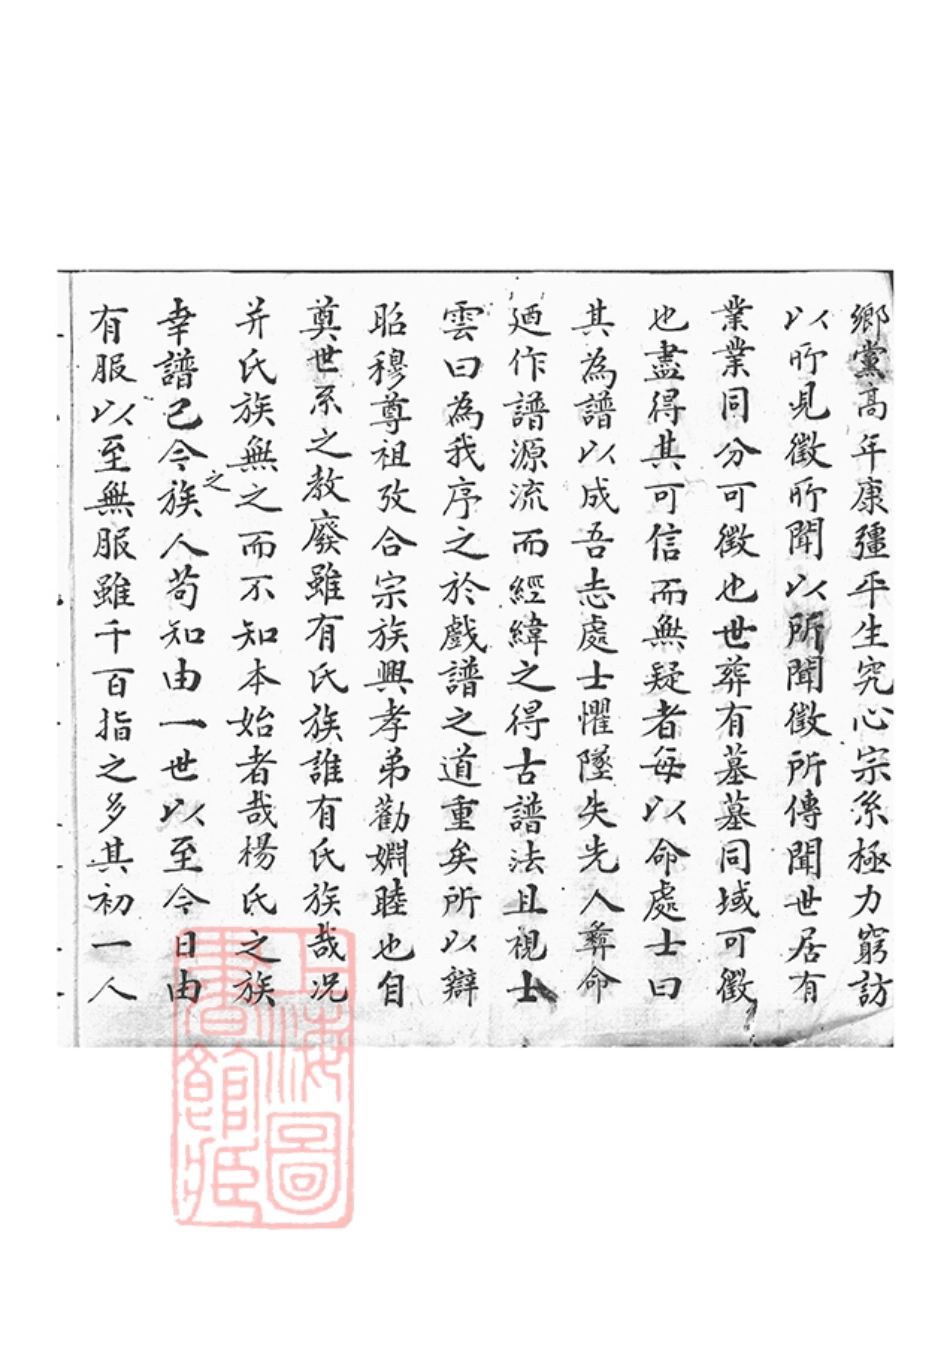 鄉黨高年康彊平生究心宗系極力窮訪
以所見徵所聞以所聞徵所傳聞世居有
業業同分可徵也世葬有墓墓同域可徵
也盡得其可信而無疑者每以命處士曰
其為譜以成吾志處士懼墜失先人彝命
廼作譜源流而經緯之得古譜法且視士
雲曰為我序之於戲譜之道重矣所以辯
昭穆尊祖攷合宗族興孝弟勸婣睦也自
奠世系之教廢雖有氏族誰有氏族哉況
并氏族無之而不知本始者哉楊氏之族
幸譜已今族之人苟知由一世以至今日由
有服以至無服雖千百指之多其初一人
上海圖
書館藏